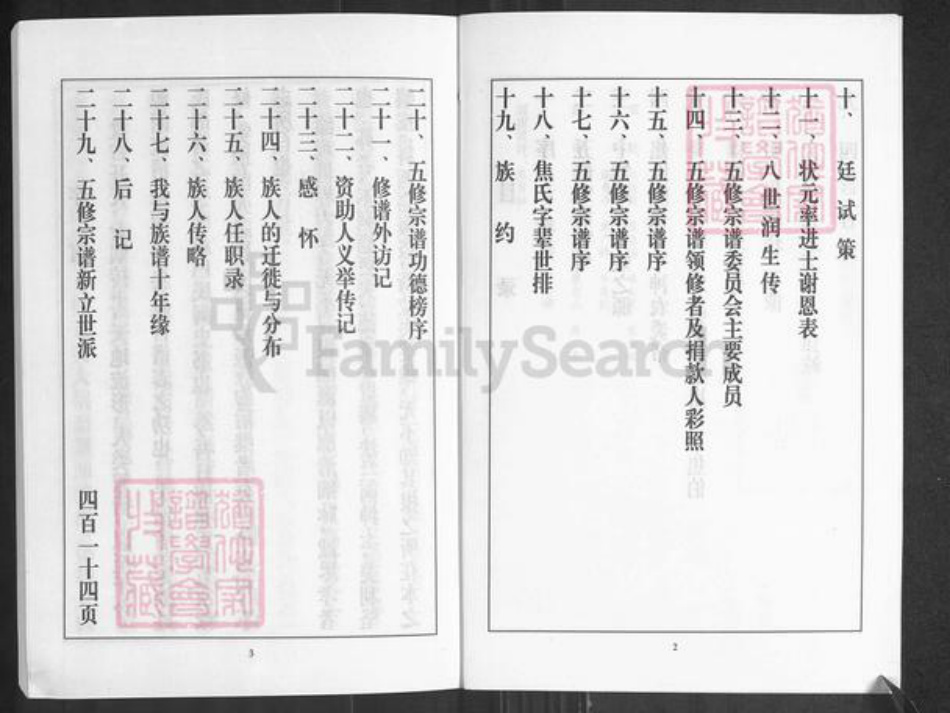 十、廷试策
十一、状元率进士谢恩表
十二、八世润生传
十三、五修宗谱委员会主要成员
十四、五修宗谱领修者及捐款人彩照
十五、五修宗谱序
十六、五修宗谱序
十七、五修宗谱序
十八、焦氏字辈世排
十九、族约
2
二十、五修宗谱功德榜序
二十一、修谱外访记
二十二、资助人义举传记
二十三、感怀
二十四、族人的迁徙与分布
二十五、族人任职录
二十六、族人传略
二十七、我与族谱十年缘
二十八、后记
二十九、五修宗谱新立世派 四百一十四页
3
FamilySearch